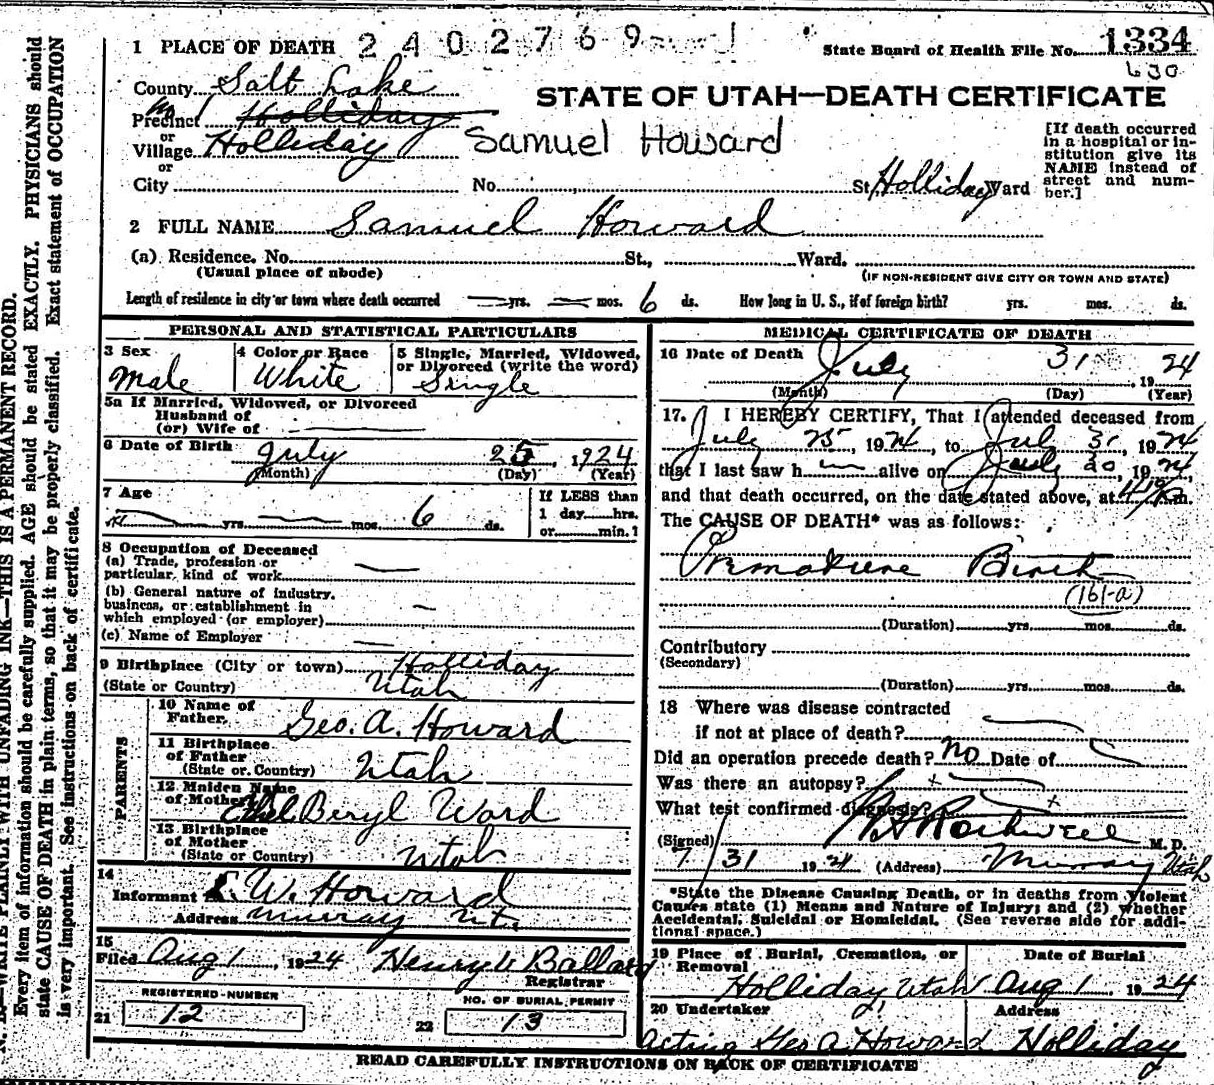 1 PLACE OF DEATH 2402769
State Board of Health File No. 1334
630
County Salt Lake
STATE OF UTAH—DEATH CERTIFICATE
Precinct Holliday
or
Village Holliday
Samuel Howard
or
City No. St. Holliday Ward
[If death occurred
in a hospital or in-
stitution give its
NAME instead of
street and num-
ber.]
2 FULL NAME Samuel Howard
(a) Residence. No. St., Ward.
(Usual place of abode)
(IF NON-RESIDENT GIVE CITY OR TOWN AND STATE)
Length of residence in city or town where death occurred — yrs. — mos. 6 ds. How long in U. S., if of foreign birth? yrs. mos. ds.
PERSONAL AND STATISTICAL PARTICULARS
3 Sex
Male
4 Color or Race
White
5 Single, Married, Widowed,
or Divorced (write the word)
Single
5a If Married, Widowed, or Divorced
Husband of
(or) Wife of —
6 Date of Birth July 25, 1924
(Month) (Day) (Year)
7 Age
— yrs. — mos. 6 ds.
If LESS than
1 day hrs.
or min.?
8 Occupation of Deceased
(a) Trade, profession or
particular, kind of work —
(b) General nature of industry,
business, or establishment in
which employed (or employer) —
(c) Name of Employer —
9 Birthplace (City or town) Holliday
(State or Country) Utah
PARENTS
10 Name of
Father Geo. A. Howard
11 Birthplace
of Father
(State or Country) Utah
12 Maiden Name
of Mother Ethel Beryl Ward
13 Birthplace
of Mother
(State or Country) Utah
14
Informant W. Howard
Address Murray Ut.
15
Filed Aug 1, 1924 Henry V Ballard
Registrar
REGISTERED NUMBER
21 12
NO. OF BURIAL PERMIT
22 13
MEDICAL CERTIFICATE OF DEATH
16 Date of Death July 31, 1924
(Month) (Day) (Year)
17. I HEREBY CERTIFY, That I attended deceased from
July 25, 1924, to July 31, 1924
that I last saw h alive on July 30, 1924,
and that death occurred, on the date stated above, at m.
The CAUSE OF DEATH* was as follows:
Premature Birth
(161-a)
(Duration) yrs. mos. ds.
Contributory
(Secondary)
(Duration) yrs. mos. ds.
18 Where was disease contracted
if not at place of death? —
Did an operation precede death? no Date of
Was there an autopsy?
What test confirmed diagnosis?
(Signed) Rockwell M. D.
7/31 1924 (Address) Murray Utah
*State the Disease Causing Death, or in deaths from Violent
Causes state (1) Means and Nature of Injury; and (2) whether
Accidental, Suicidal or Homicidal. (See reverse side for addi-
tional space.)
19 Place of Burial, Cremation, or
Removal
Holliday, Utah
Date of Burial
Aug 1 1924
20 Undertaker
acting Geo A. Howard
Address
Holliday
READ CAREFULLY INSTRUCTIONS ON BACK OF CERTIFICATE
N. B.—WRITE PLAINLY WITH UNFADING INK—THIS IS A PERMANENT RECORD.
Every item of information should be carefully supplied. AGE should be stated EXACTLY. PHYSICIANS should
state CAUSE OF DEATH in plain terms, so that it may be properly classified. Exact statement of OCCUPATION
is very important. See instructions on back of certificate.